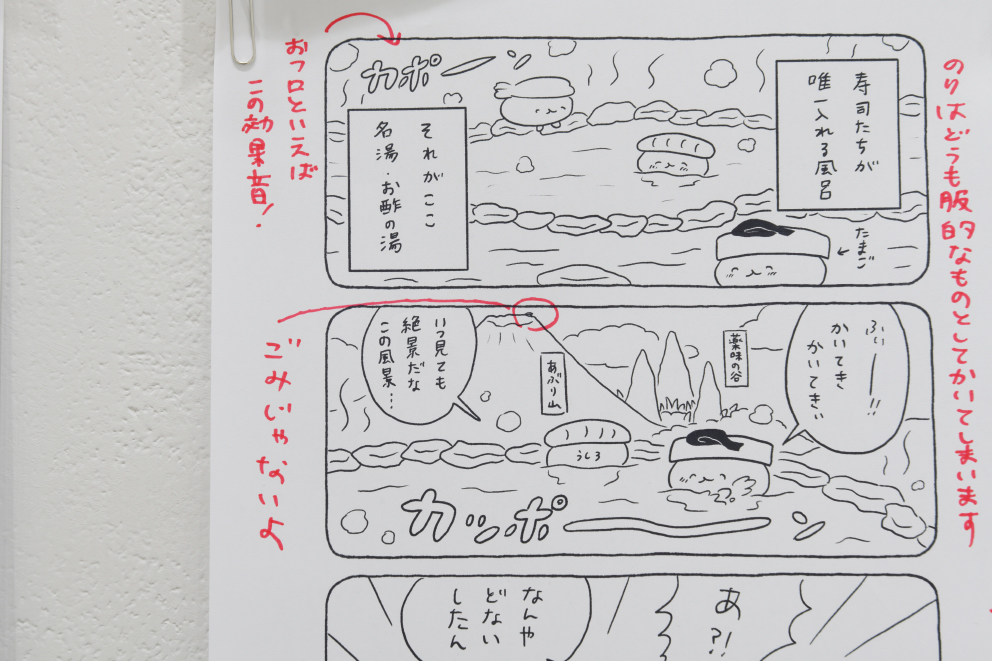 のりはどうも服的なものとしてかいてしまいます
寿司たちが
唯一入れる風呂
カポーン
それがここ
名湯・お酢の湯
たまご
おフロといえば
この効果音！
ふぃ〜!!
かいてき
かいてきぃ
薬味の谷
あぶり山
いつ見ても
絶景だな
この風景…
うしろ
カッポーン
ごみじゃないよ
あ?!
なんや
どない
したん